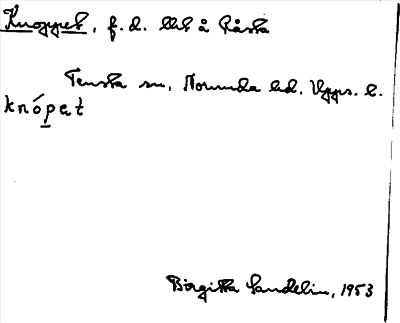 Knoppet, f.d. lht å Råsta
Tensta sn, Norunda hd, Upps. l.
knópet
Birgitta Sandelin, 1953